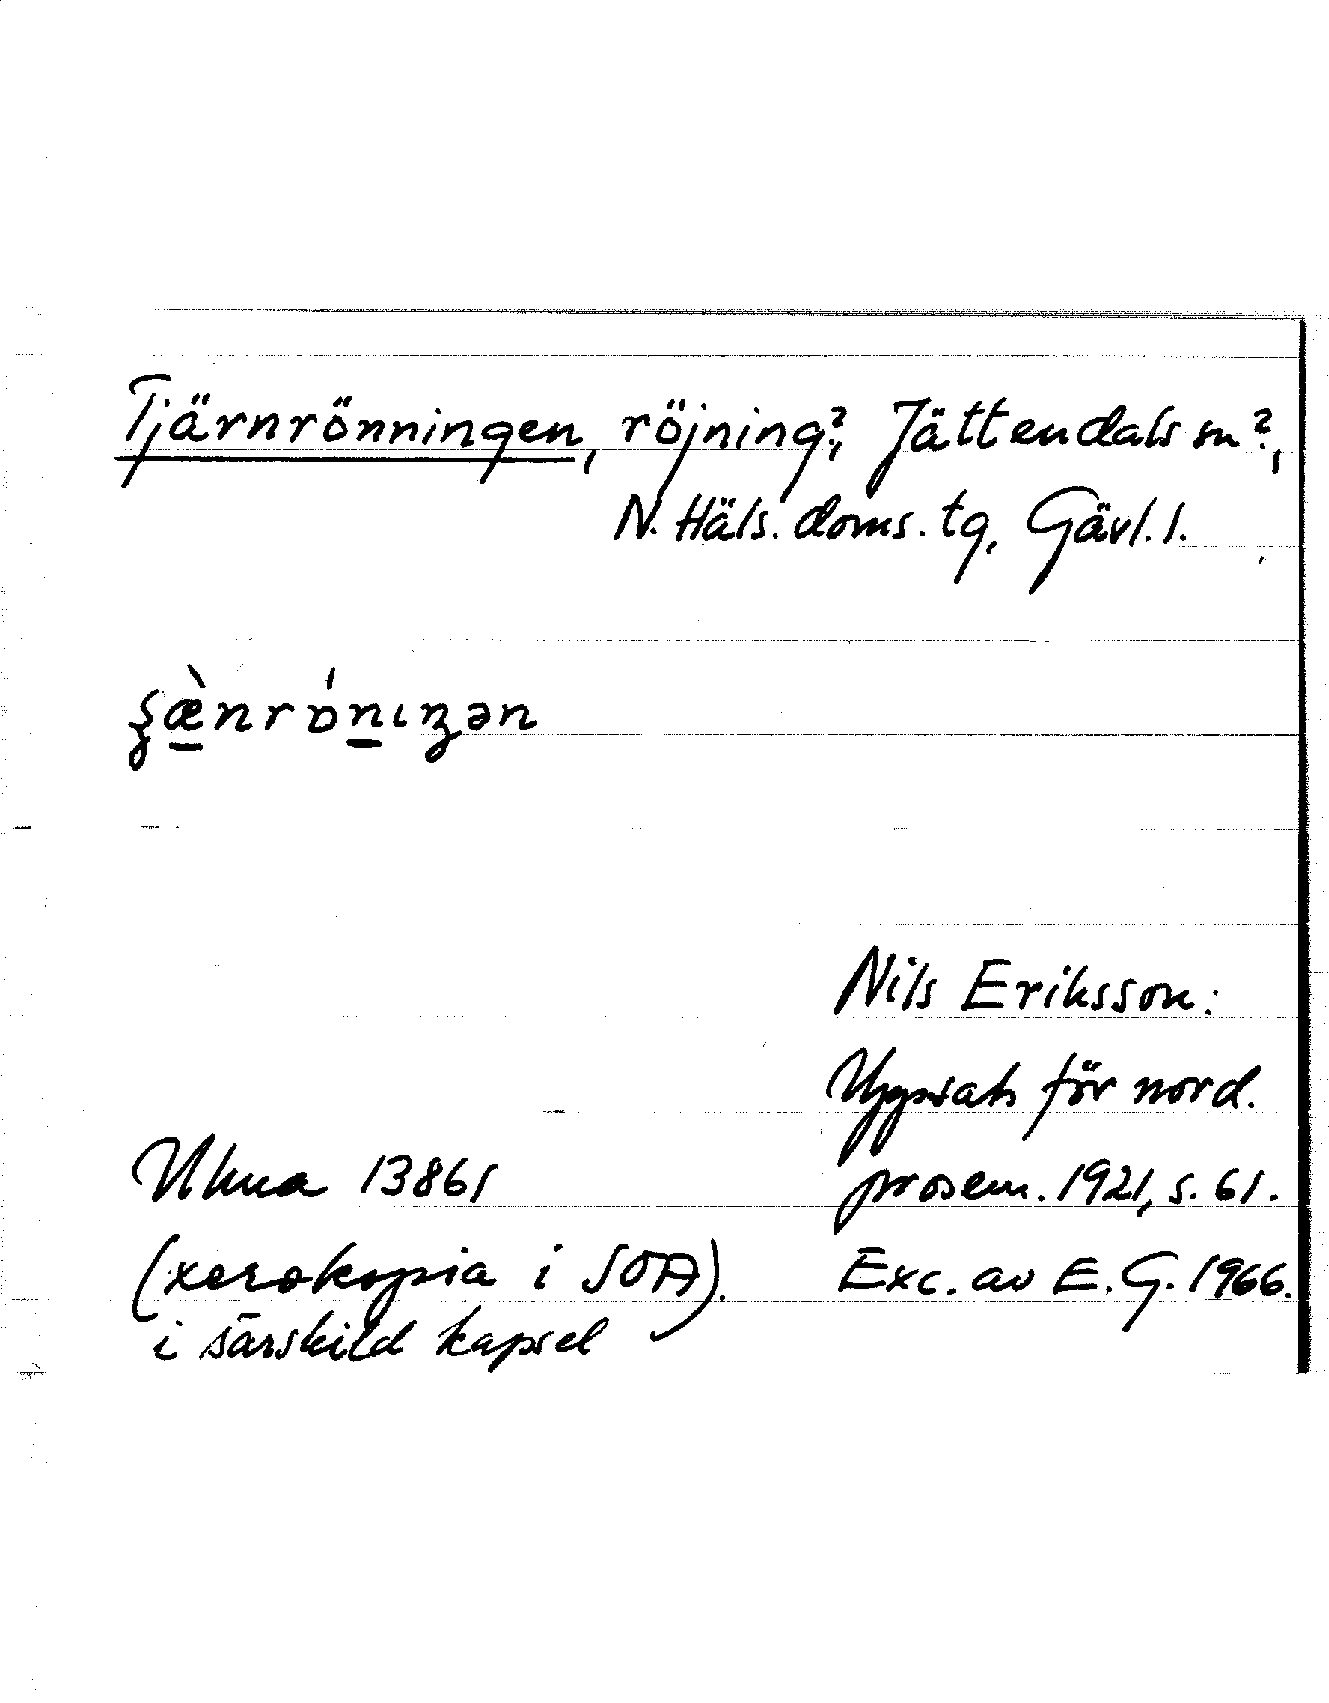 Tjärnrönningen, röjning?, Jättendals sn?,
N. Häls. doms. tg, Gävl. l.
Nils Eriksson:
Uppsats för nord.
prosem. 1921, s. 61.
Exc. av E. G. 1966.
Ukua 13861
(xerokopia i SOA).
i särskild kapsel